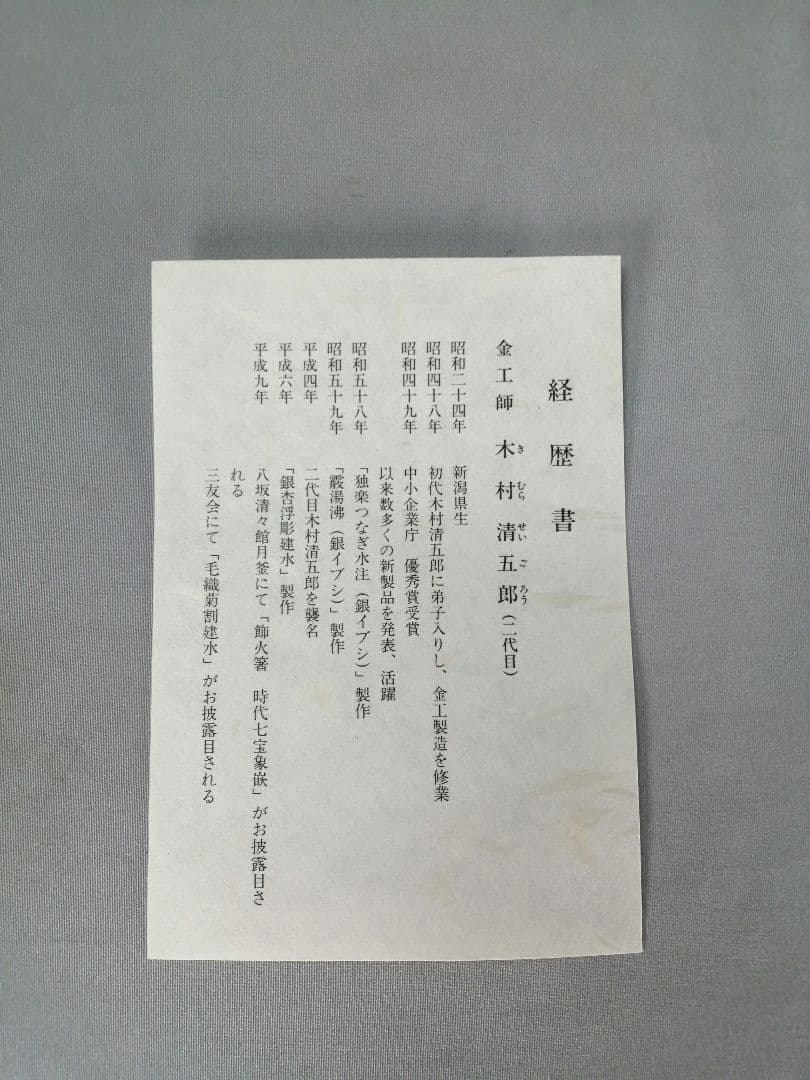 経歴書
金工師 木村清五郎(二代目)
き むら せい ご ろう
昭和二十四年 新潟県生
昭和四十八年 初代木村清五郎に弟子入りし、金工製造を修業
昭和四十九年 中小企業庁 優秀賞受賞
以来数多くの新製品を発表、活躍
昭和五十八年 「独楽つなぎ水注(銀イブシ)」製作
昭和五十九年 「霰湯沸(銀イブシ)」製作
平成四年 二代目木村清五郎を襲名
平成六年 「銀杏浮彫建水」製作
平成九年 八坂清々館月釜にて「飾火箸 時代七宝象嵌」がお披露目さ
れる
三友会にて「毛織菊割建水」がお披露目される